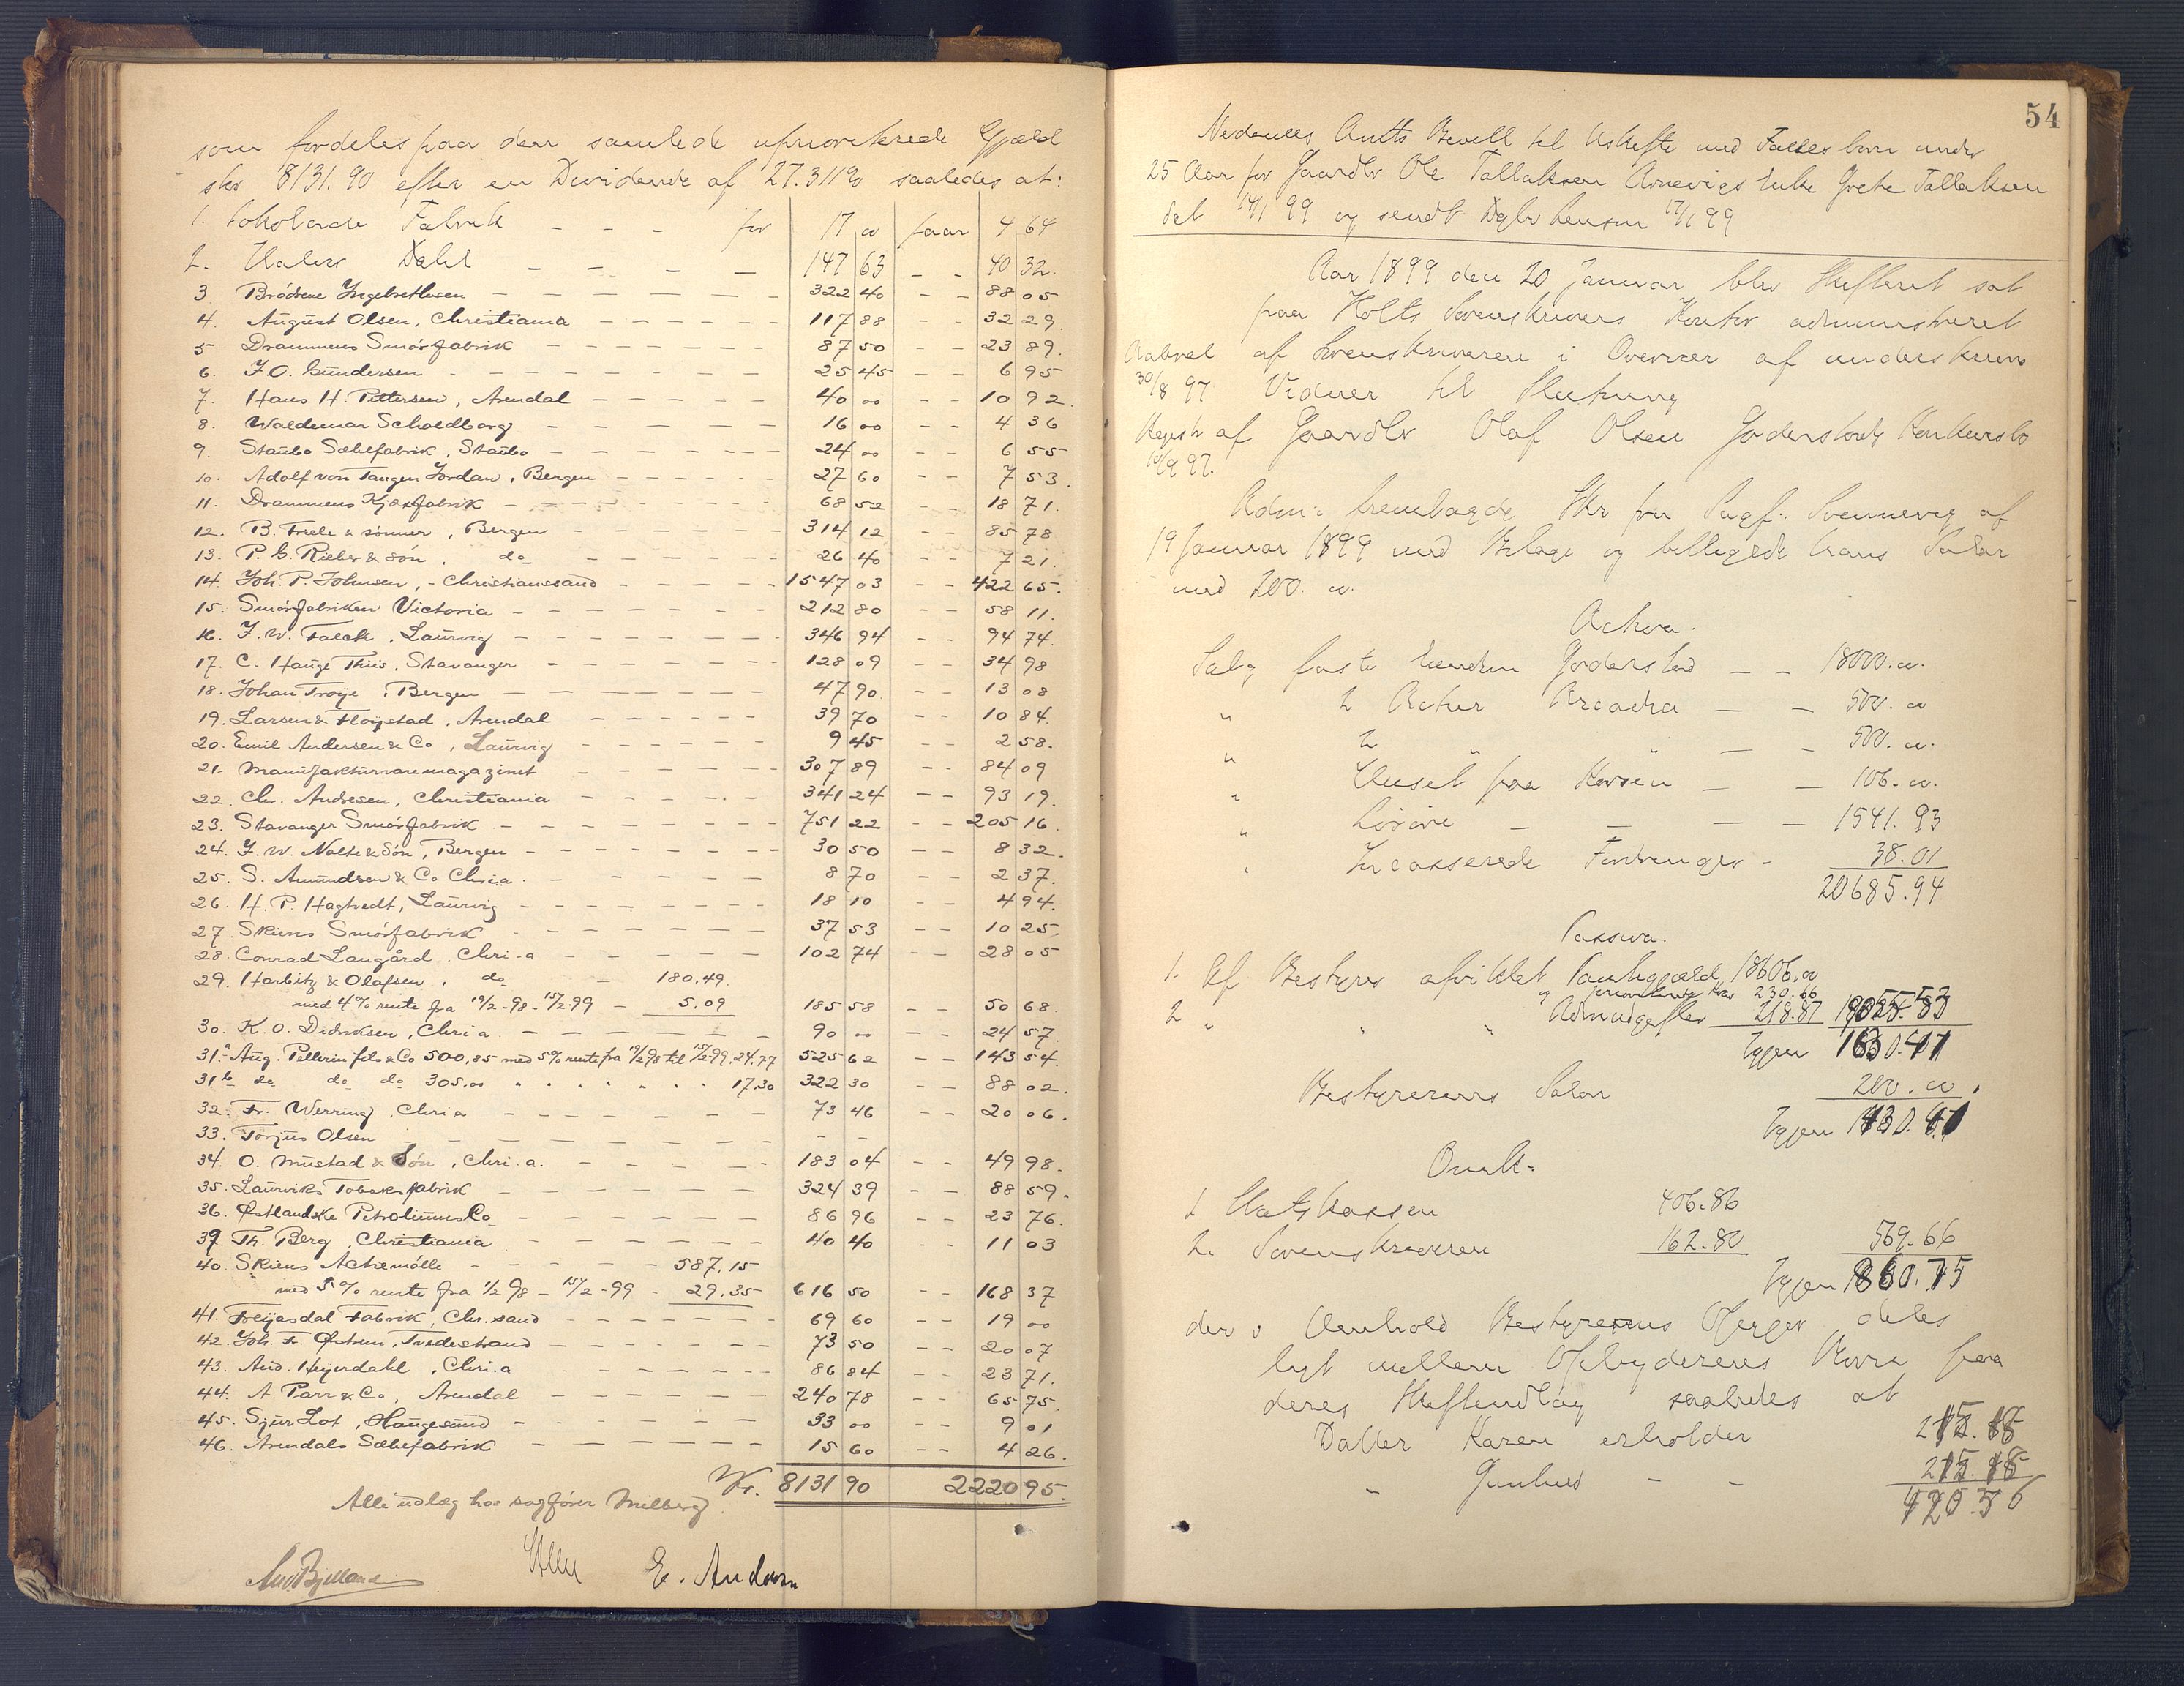 som fordeles paa den samlede uprioriterede Gjæld
stor 8131.90 efter en Dividende af 27.311% saaledes at:
1. Fabrik - - - for 17 00 faar 4 64
2. Dahl - - - - 147 63 - - 40 32.
3 Brødrene Ingebrethsen - - - 322 40 - - 88 05
4. August Olsen, Christiania - - - 117 88 - - 32 29.
5 Drammens Smørfabrik - - - 87 50 - - 23 89.
6. J. O. Gundersen - - - 25 45 - - 6 95
7. Hans H. Pettersen, Arendal - - - 40 00 - - 10 92.
8. Waldemar Scholdborg - - - 16 00 - - 4 36
9. Staubo Sæbefabrik, Staubo - - - 24 00 - - 6 55
10. Adolf von Tangen Jordan, Bergen - - - 27 60 - - 7 53.
11. Drammens Kjæxfabrik - - - 68 52 - - 18 71.
12. B. Friele & sønner, Bergen - - - 314 12 - - 85 78
13. P. G. Rieber & søn, do - - - 26 40 - - 7 21.
14. Joh. P. Johnsen, - Christianssand - - - 1547 03 - - 422 65.
15. Smørfabriken Victoria - - - 212 80 - - 58 11.
16. J. W. Falck, Laurvig - - - 346 94 - - 94 74.
17. C. Hauge Thiis, Stavanger - - - 128 09 - - 34 98
18. Johan Troye, Bergen - - - 47 90 - - 13 08
19. Larsen & Fløystad, Arendal - - - 39 70 - - 10 84.
20. Emil Andersen & Co, Laurvig - - - 9 45 - - 2 58.
21. Manufakturvaremagazinet - - - 307 89 - - 84 09
22. Chr. Andresen, Christiania - - - 341 24 - - 93 19.
23. Stavanger Smørfabrik - - - 751 22 - - 205 16.
24. J. W. Nolte & Søn, Bergen - - - 30 50 - - 8 32.
25. S. Amundsen & Co Chria. - - - 8 70 - - 2 37.
26. H. P. Hagtvedt, Laurvig - - - 18 10 - - 4 94.
27. Skiens Smørfabrik - - - 37 53 - - 10 25.
28. Conrad Langård, Chri.a - - - 102 74 - - 28 05
29. Harbitz & Olafsen, do - 180.49.
med 4% rente fra 19/2-98 - 15/2-99 - 5.09 185 58 - - 50 68.
30. K. O. Didriksen, Chria - - - 90 00 - - 24 57.
31.a Aug. Pellerin fils & Co 500,85 med 5% rente fra 19/2 98 til 15/2-99. 24.77 525 62 - - 143 54.
31b do do do 305.00 " " " " 17.30 322 30 - - 88 02.
32. Fr. Werring, Chria - - - 73 46 - - 20 06.
33. Torjus Olsen - - -
34. O. Mustad & Søn, Chri.a. - - - 183 04 - - 49 98.
35. Laurviks Tobaksfabrik - - - 324 39 - - 88 59.
36. Østlandske Petroliums Co - - - 86 96 - - 23 76.
39. Th. Berg, Christiania - - - 40 40 - - 11 03
40. Skiens Actiemølle - - - 587.15
med 5% rente fra 1/2 98 - 15/2-99 - 29.35 616 50 - - 168 37
41. Freijasdal Fabrik, Chr. sand - - - 69 60 - - 19 00
42. Joh. Fr. Østrem, Tvedestrand - - - 73 50 - - 20 07
43. And. Heyerdahl, Chri.a - - - 86 84 - - 23 71.
44. A. Parr & Co, Arendal - - - 240 78 - - 65 75.
45. Sjur Lot, Haugesund - - - 33 00 - - 9 01
46. Arendals Sæbefabrik - - - 15 60 - - 4 26.
Kr. 8131 90 2220 95.
Alle udlæg hos sagfører Milberg.
E. Andersen
54
Nedenes Amts Bevill til Uskifte med Fælles børn under
25 Aar for Gaardbr Ole Tallaksen Arnevigs Enke Grethe Tallaksen
dat 14/1 99 og sendt 17/1 99
Aar 1899 den 20 Januar blev Skifteret sat
paa Holts Sorenskrivers Kontor administreret
Aabnet af Sorenskriveren i Overvær af underskrevne
30/8 97 Vidner til Slutning
Regist af Gaardbr Olaf Olsen Goderstads Konkursbo
10/9 97.
Adm: fremlagde Skr fra Sagf: Svennevig af
19 Januar 1899 med Bilage og billigede hans Salær
med 200. 00.
Activa.
Salg faste Eiendom Goderstad - - 18000.00.
" 2 Actier Arcadia - - 500.00
" 2 " " - - 500.00.
" Huset paa - - 106.00.
" Løsøre - - - - 1541.93
" Incasserede Fordringer - 38.01
20685.94
Passiva.
1. Af Bestyrer afviklet Panthegjæld 18606.00
2 " " og 230.66
" Adm udgifter 218.87
Igjen
Bestyrerens Salær 200.00.
Igjen
1 Statskassen 406.86
2. Sorenskriveren 162.80 569.66
Igjen
der i Henhold Bestyrerens Opgjør deles
ligt mellem Opbyderens Krav paa
deres Skifteudlæg saaledes at
Datter Karen erholder
" Gunhild - -